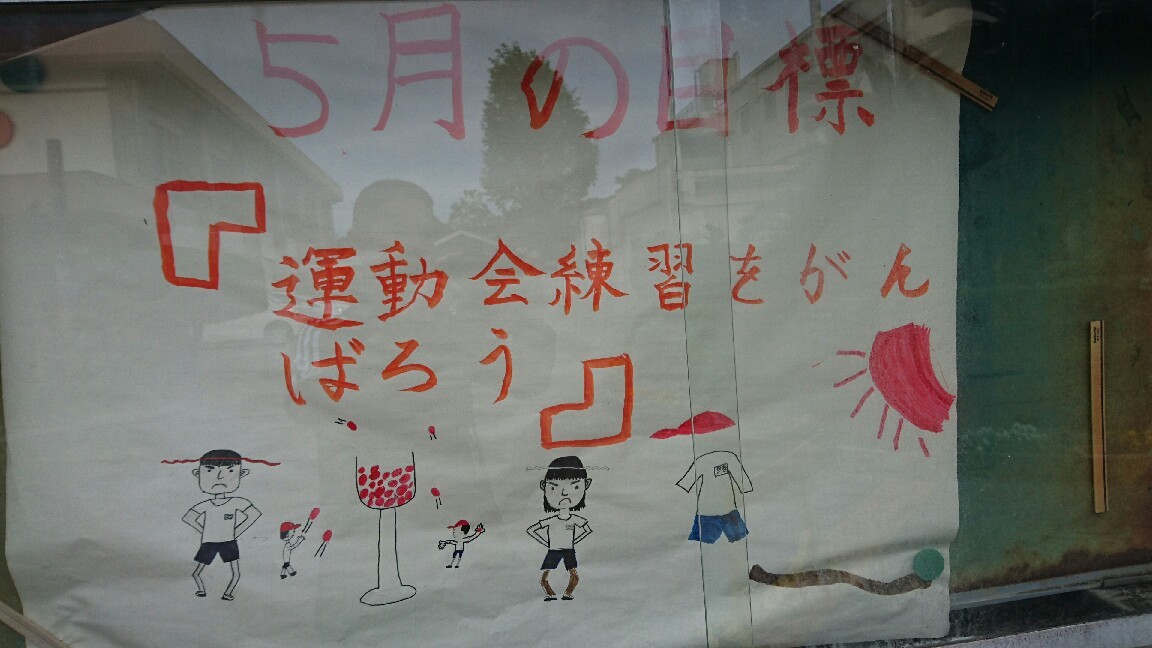 5月の目標
『運動会練習をがん
ばろう』